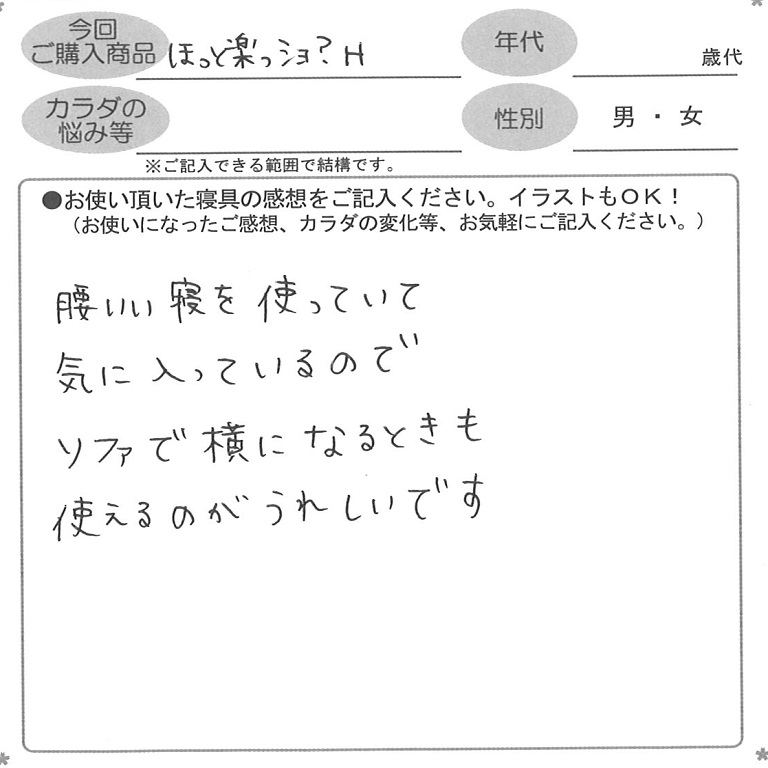 今回
ご購入商品
ほっと楽っショ?H
年代
歳代
カラダの
悩み等
性別
男・女
※ご記入できる範囲で結構です。
●お使い頂いた寝具の感想をご記入ください。イラストもOK!
(お使いになったご感想、カラダの変化等、お気軽にご記入ください。)
腰いい寝を使っていて
気に入っているので
ソファで横になるときも
使えるのがうれしいです